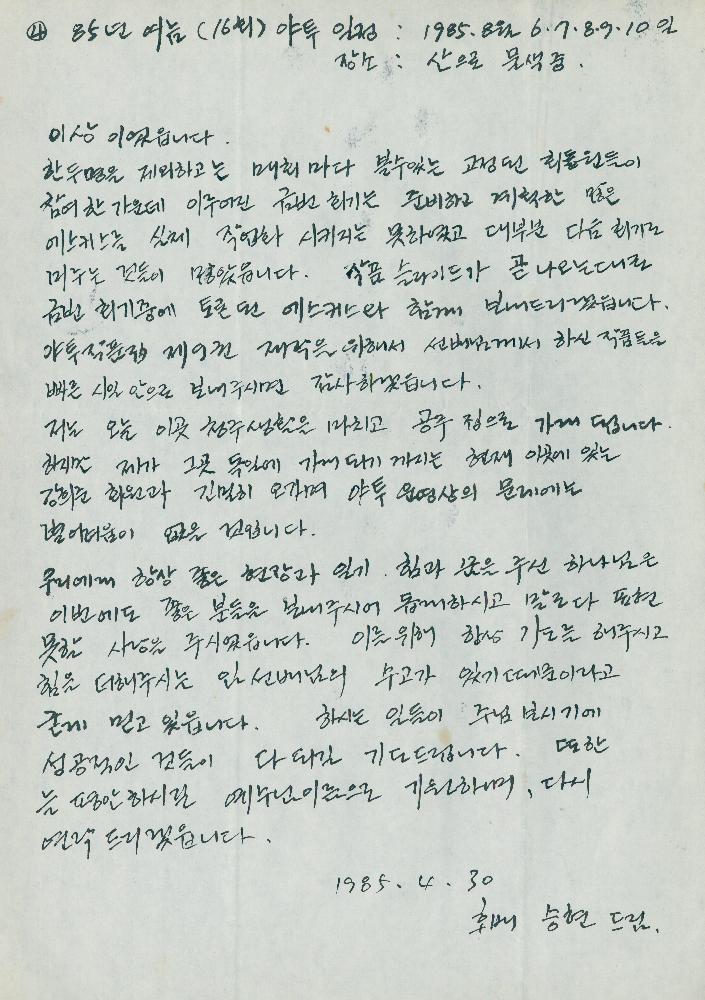 ④ 85년 여름 (16회) 야투 일정 : 1985. 8월 6. 7. 8. 9. 10일
장소 : 산으로 물색중.
이상 이었읍니다.
한두명을 제외하고는 매회 마다 볼수있는 고정된 회원들이
참여한 가운데 이루어진 금번 회기는 준비하고 계획한 많은
에스키스를 실제 작업화 시키지는 못하였고 대부분 다음 회기로
미루는 것들이 많았읍니다. 작품 슬라이드가 곧 나오는대로
금번 회기중에 토론된 에스키스와 함께 보내드리겠읍니다.
야투작품집 제의권 제작을 위해서 선배님께서 하신 작품들을
빠른 시일 안으로 보내주시면 감사하겠읍니다.
저는 오늘 이곳 청주생활을 마치고 공주 집으로 가게 됩니다.
하지만 제가 그곳 독일에 가게 되기 까지는 현재 이곳에 있는
강희준 회원과 긴밀히 오가며 야투 운영상의 문제에는
별어려움이 없을 것입니다.
우리에게 항상 좋은 현장과 일기. 힘과 꿈을 주신 하나님은
이번에도 좋은 분들을 보내주시어 함께하시고 말로다 표현
못할 사랑을 주시었읍니다. 이를위해 항상 기도를 해주시고
힘을 더해주시는 임선배님의 수고가 있기때문이라고
굳게 믿고 있읍니다. 하시는 일들이 주님 보시기에
성공적인 것들이 다 되길 기도드립니다. 또한
늘 평안하시길 예수님이름으로 기원하며, 다시
연락 드리겠읍니다.
1985. 4. 30
후배 승현 드림.